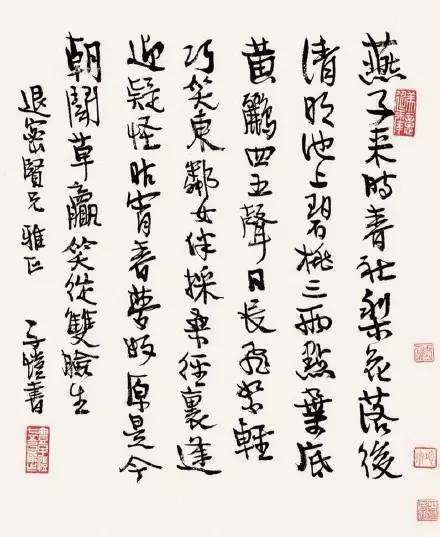 燕子来時春社梨花落後
清明池上碧桃三兩點葉底
黃鸝四五聲日長飛絮輕
巧笑東鄰女伴採桑徑裏逢
迎疑怪昨宵春夢好原是今
朝鬥草贏笑從雙臉生
退密賢兄雅正 子愷書